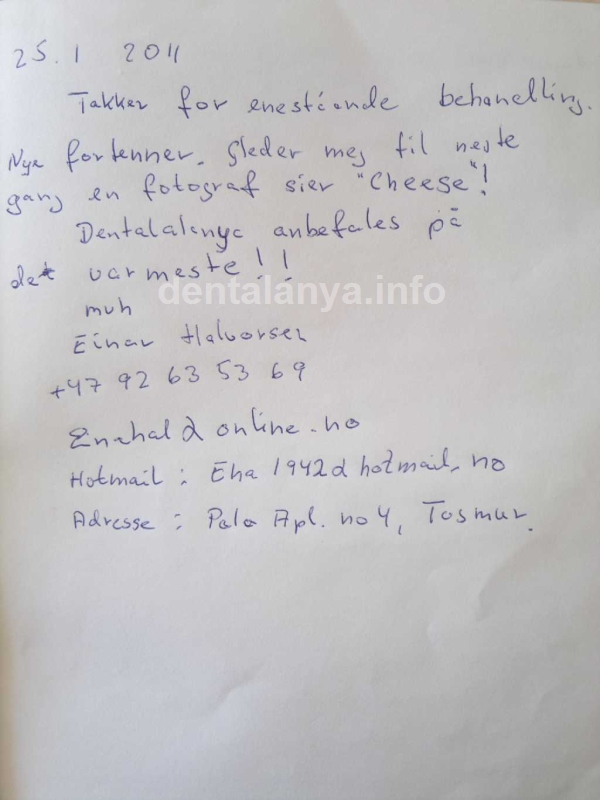 25.1 2011
Takker for enestående behandling.
Nye fortenner. Gleder meg til neste
gang en fotograf sier "Cheese"!
Dentalalanya anbefales på
det varmeste!!
dentalanya.info
mvh
Einar Halvorsen
+47 92 63 53 69
online.no
Hotmail: Eha 1942@hotmail.no
Adresse: Pala Apl. no 4, Tosmur.